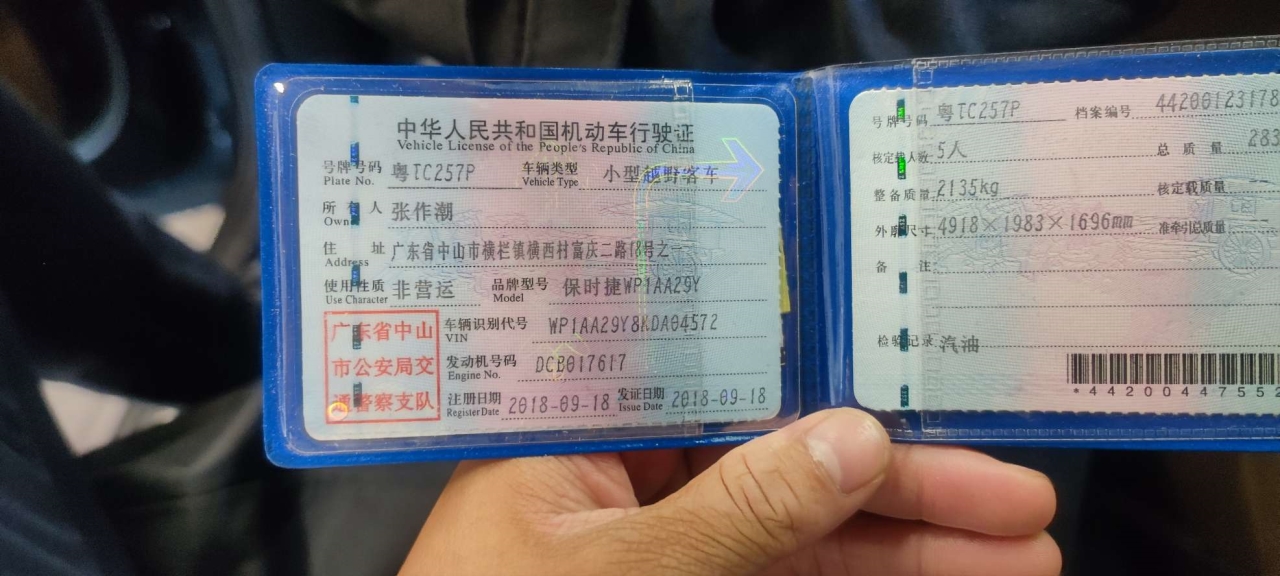 中华人民共和国机动车行驶证
Vehicle License of the People's Republic of China
号牌号码 粤TC257P 车辆类型 小型越野客车
Plate No. Vehicle Type
所有人 张作潮
Owner
住址 广东省中山市横栏镇横西村富庆二路18号之一
Address
使用性质 非营运 品牌型号 保时捷WP1AA29Y
Use Character Model
广东省中山
市公安局交
通警察支队
车辆识别代号 WP1AA29Y8KDA04572
VIN
发动机号码 DCB017617
Engine No.
注册日期 2018-09-18 发证日期 2018-09-18
Register Date Issue Date
号牌号码 粤TC257P 档案编号 44200123178
核定载人数 5人 总质量 283
整备质量 2135kg 核定载质量 --
外廓尺寸 4918×1983×1696mm 准牵引总质量 --
备注
检验记录 汽油
*44200447552